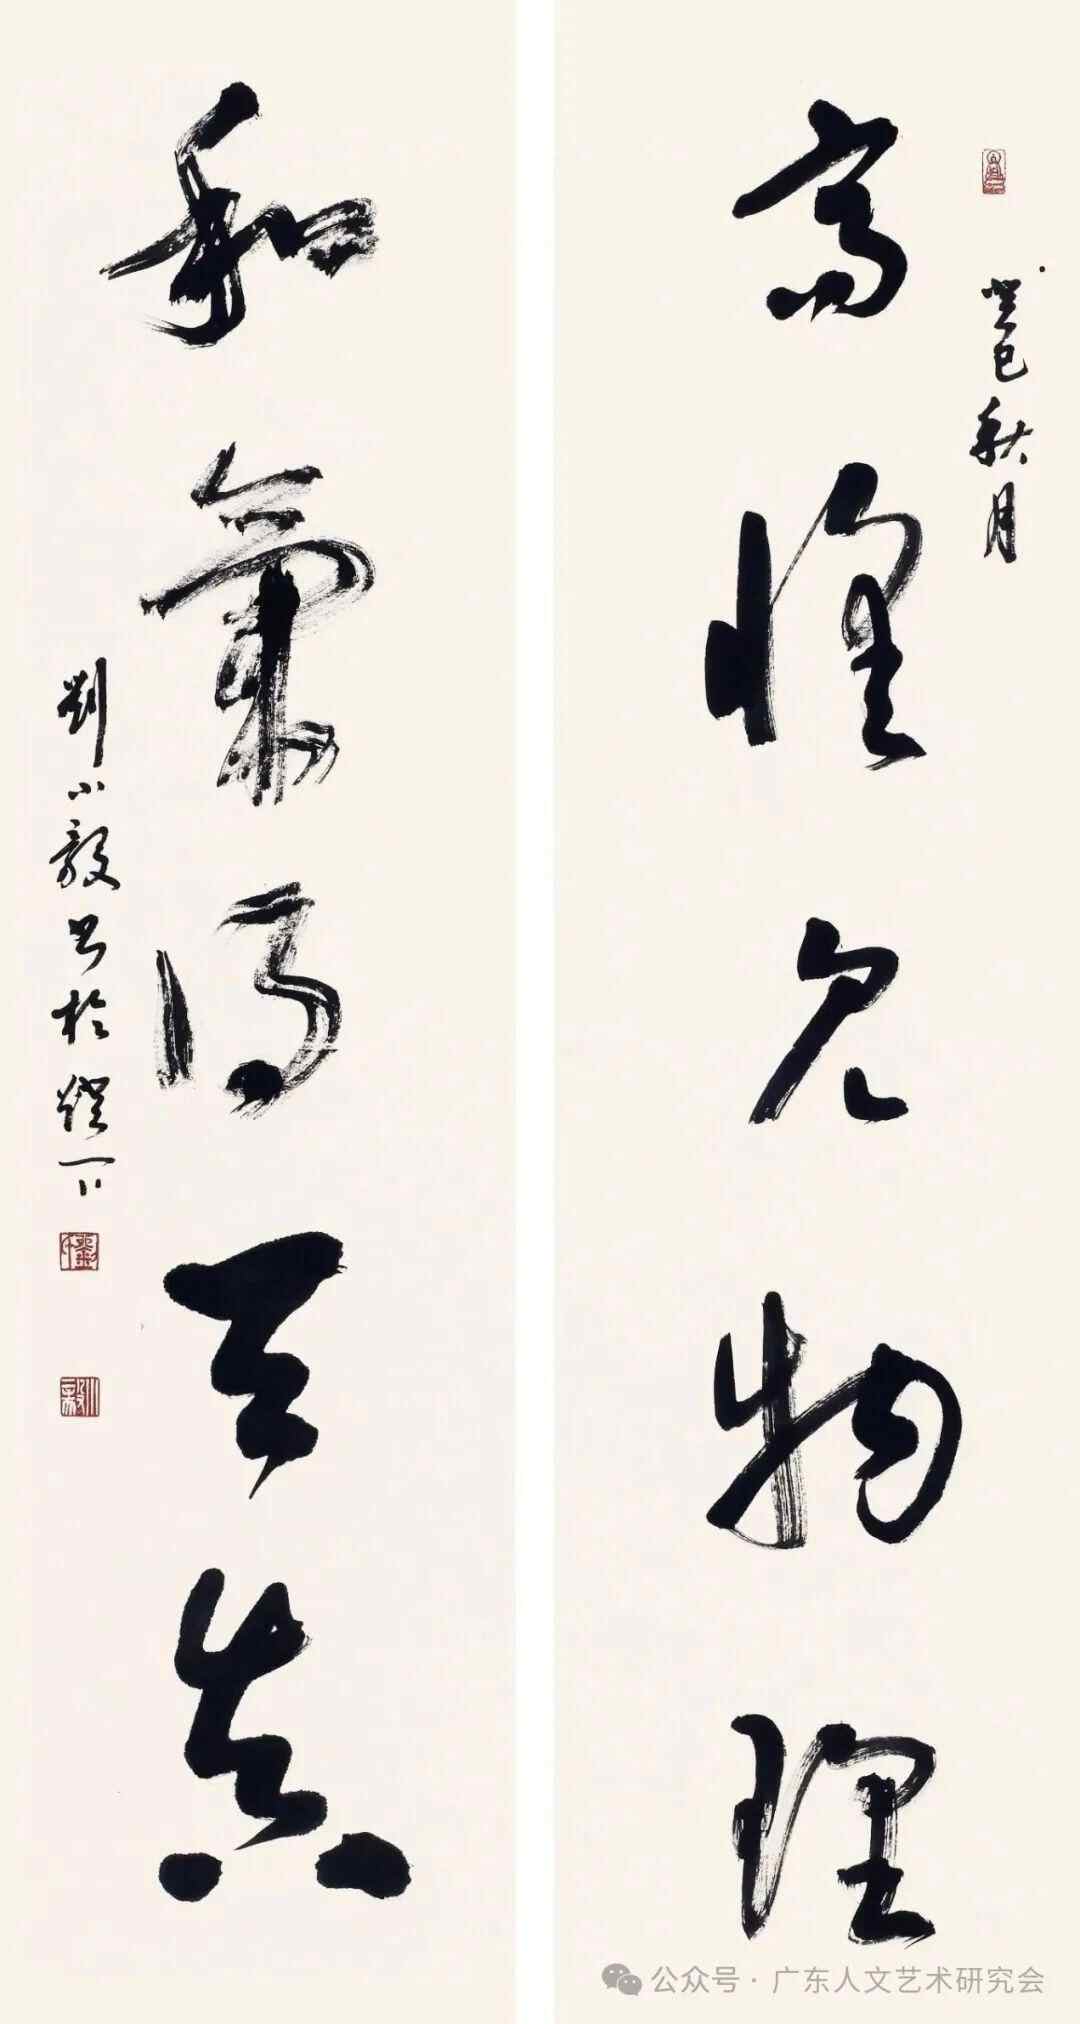 癸巳秋月
高怀见物理
和氣得天真
劉小毅书於燈下
公众号·广东人文艺术研究会